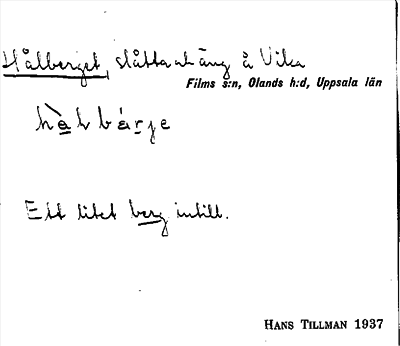 Hålberget, slåtta o häng å Vika
Films s:n, Olands h:d, Uppsala län
hàlbárje
Ett litet berg intill.
HANS TILLMAN 1937